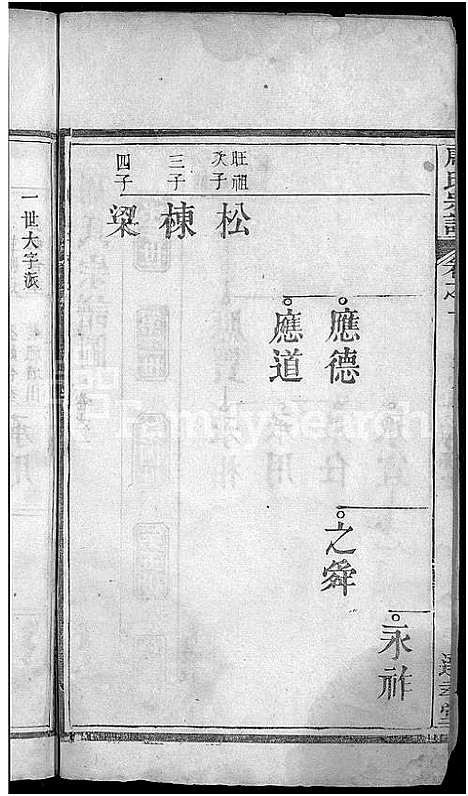 氏宗譜
卷之一
永祚
之舜
應德
應道
旺祖
次子
松
三子
棟
四子
梁
一世大字派
FamilySearch